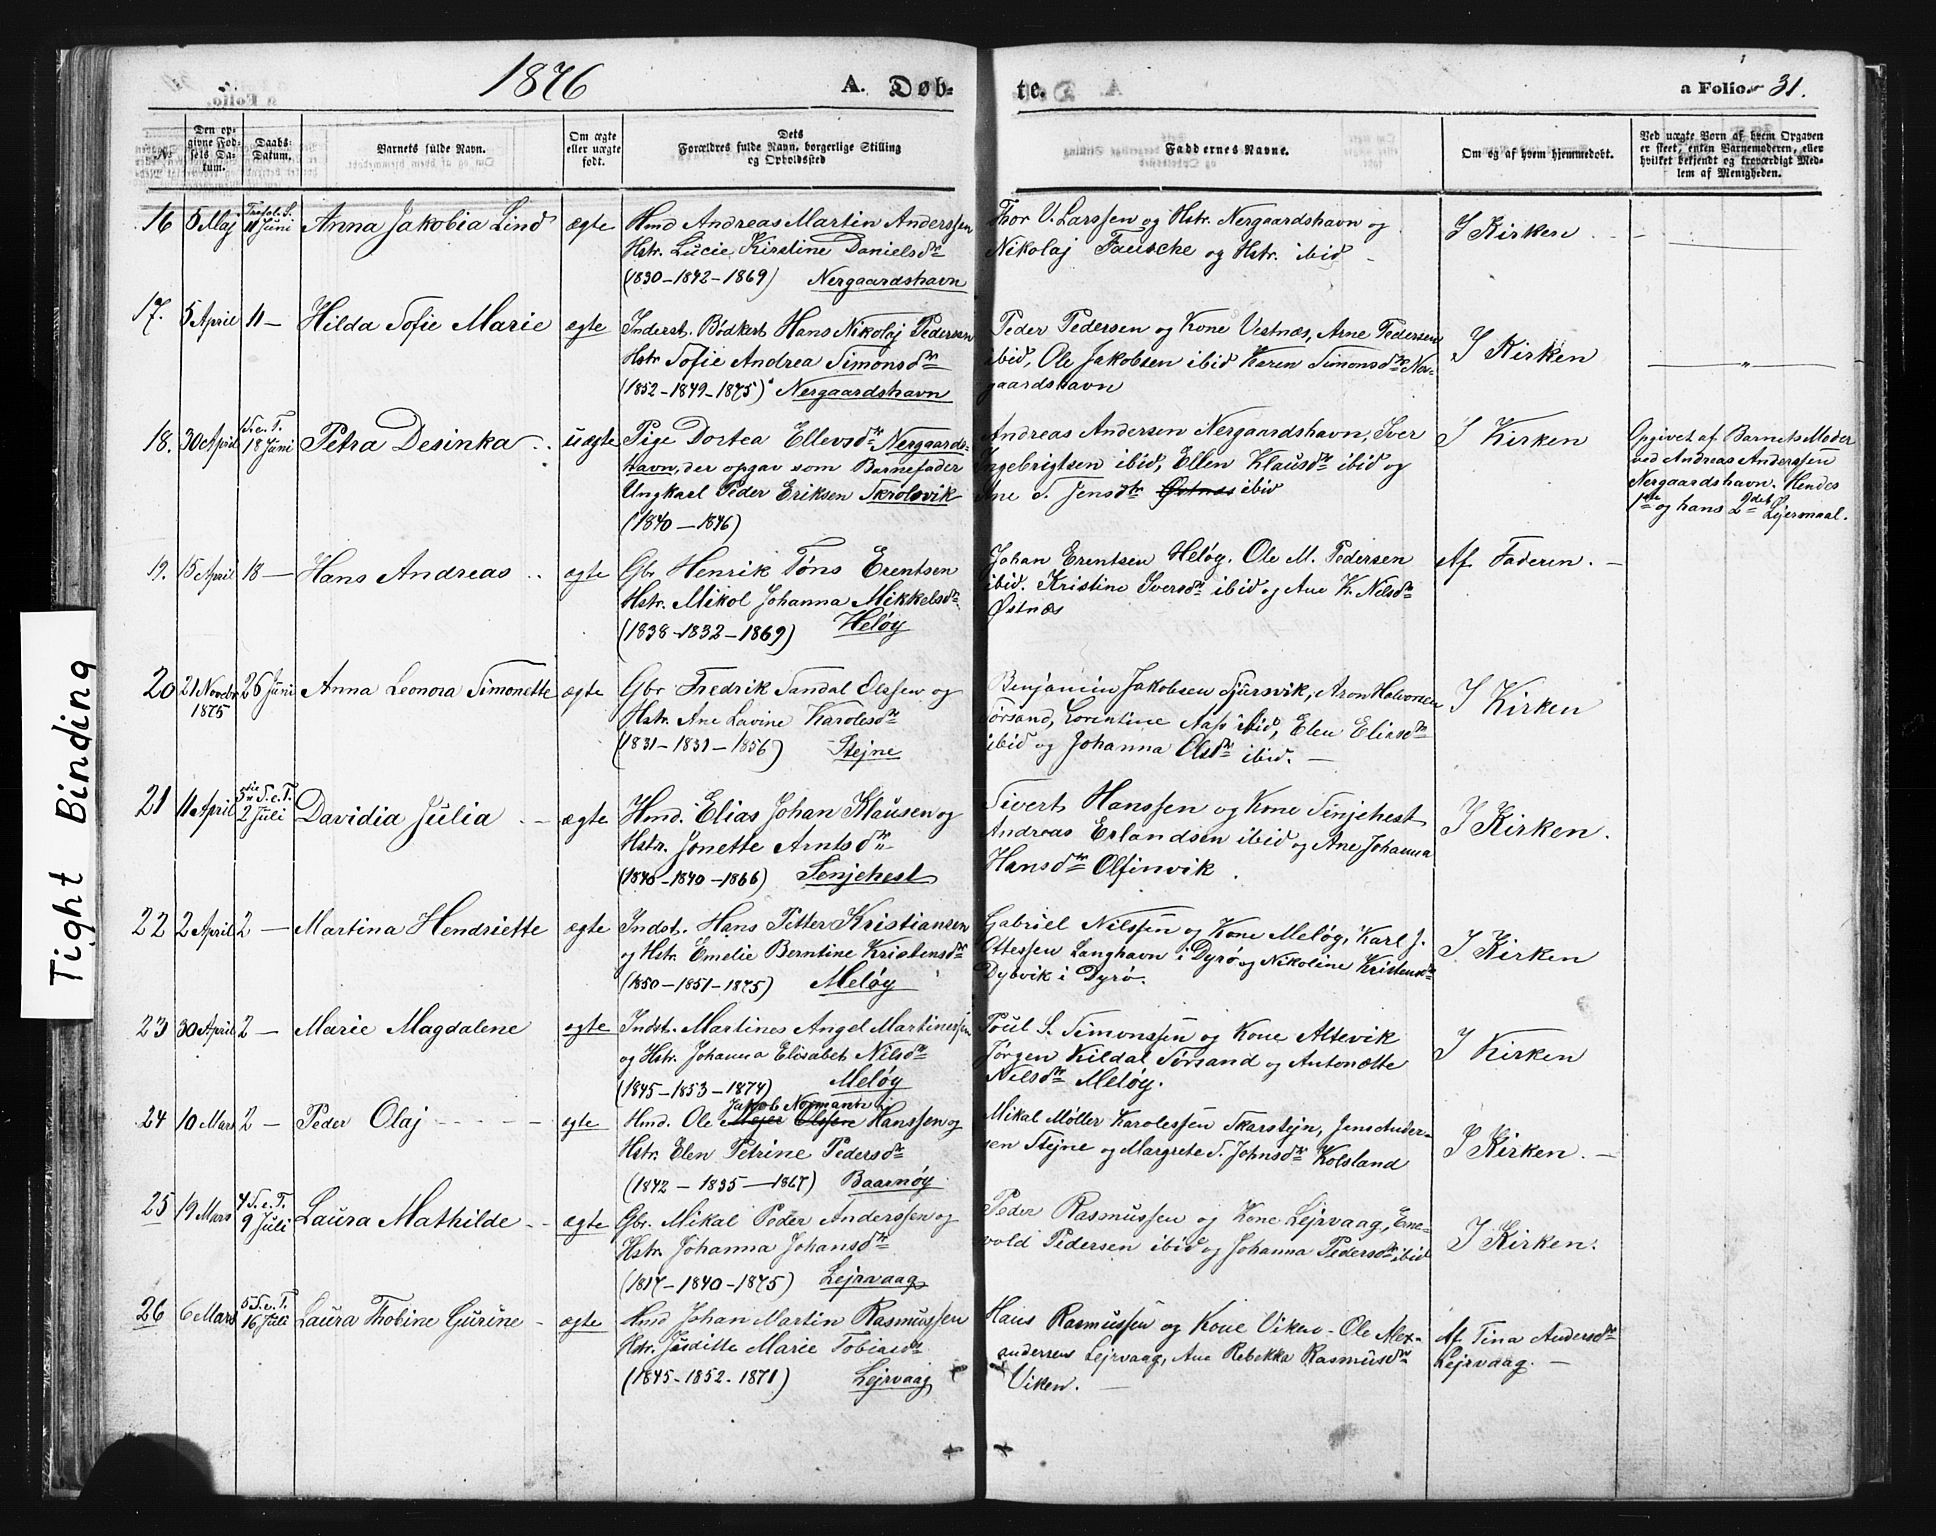 1876
A. Døb-
te.
a Folio. 31.
Tight Binding
No.
Den op-
givne Fød-
sels Da-
tum.
Daabs-
Datum.
Barnets fulde Navn.
Om ægte
eller uægte
født.
Dets
Forældres fulde Navn, borgerlige Stilling
og Opholdssted
Faddernes Navne.
Om og af hvem hjemmedøbt.
Ved uægte Børn af hvem Opgaven
er skeet, enten Barnemoderen, eller
hvilket bekjendt og troværdigt Med-
lem af Menigheden.
16 5 Maj Trefol. S. 11 Juni Anna Jakobia Lind ægte
Hmd Andreas Martin Anderssen
Hstr. Lucie Kirstine Danielsdtr
(1830-1842-1869) Nergaardshavn
Thor V. Larssen og Hstr. Nergaardshavn og
Nikolaj Fauscke og Hstr. ibid
I Kirken
17. 5 April 11 — Hilda Sofie Marie ægte
Inderst. Bødkers Hans Nikolaj Pedersen
Hstr Sofie Andrea Simonsdtr
(1852-1849-1875) Nergaardshavn
Peder Pedersen og Kone Vestnæs, Arne Pedersen
ibid, Ole Jakobsen ibid Karen Simonsdtr Ner-
gaardshavn
I Kirken
18. 30 April 1 S. e. T. 18 Juni Petra Desinka uægte
Pige Dortea Ellevsdtr Nergaards-
havn, der opgav som Barnefader
Ungkarl Peder Eriksen Skrolsvik
(1840-1846)
Andreas Andersen Nergaardshavn, Iver
Ingebrigtsen ibid, Ellen Klausdtr ibid og
Ane S. Jensdtr Østnæs ibid
I Kirken
Opgivet af Barnets Moder
ved Andreas Anderssen
Nergaardshavn. Hendes
1ste og hans 2det Lejermaal.
19. 15 April 18 — Hans Andreas ægte
Gbr Henrik Tøns Erentsen
Hstr. Mikol Johanna Mikkelsdtr
(1838-1832-1869) Heløy
Johan Erentsen Heløy. Ole M. Pedersen
ibid. Kristine Iversdtr ibid og Ane K. Nelsdtr
Østnæs
Af Faderen.
20 21 Novebr 1875 26 Juni Anna Leonora Simonette ægte
Gbr Fredrik Sandal Olssen og
Hstr. Ane Lovine Karolesdtr
(1831-1831-1856) Stejne
Benjamin Jakobsen Tjursvik, Aron Halvorsen
Tørsand, Lorentine Aas ibid, Elen Eliasdtr
ibid og Johanna Olsdtr ibid.
I Kirken
21 11 April 3die S. e. T. 2 Juli Davidia Julia ægte
Hmd. Elias Johan Klausen og
Hstr. Jonette Arntsdtr
(1840-1840-1866) Senjehest
Sivert Hanssen og Kone Sinjehest
Andreas Erlandsen ibid og Ane Johanna
Hansdtr Olfinvik.
I Kirken.
22 2 April 2 — Martina Hendriette ægte
Indst. Hans Petter Kristiansen
og Hstr. Emelie Berntine Kristensdtr
(1850-1851-1875) Meløy
Gabriel Nilssen og Kone Meløy, Karl J.
Ottessen Langhavn i Dyrø og Nikoline Kristensdtr
Dybvik i Dyrø.
I Kirken
23 30 April 2 — Marie Magdalene ægte
Indst. Martines Angel Martinessen
og Hstr. Johanna Elisabet Nilsdtr
(1845-1853-1874) Meløy
Poul S. Simonssen og Kone Altevik
Jørgen Kildal Tørsand og Antonætte
Nelsdtr Meløy.
I Kirken
24 10 Mars 2 — Peder Olaj ægte
Jakob Normann
Hmd. Ole Mejer Olssen Hanssen og
Hstr. Elen Petrine Pedersdtr
(1842-1835-1867) Baarnøy
Mikal Møller Karolessen Skarstejn, Jens Ander-
sen Stejne og Margrete S. Johnsdtr Kolsland
I Kirken.
25 19 Mars 4 S. e. T. 9 Juli Laura Mathilde ægte
Gbr. Mikal Peder Anderssen og
Hstr. Johanna Johansdtr
(1817-1840-1875) Lejrvaag
Peder Rasmussen og Kone Lejrvaag, Ene-
vold Pedersen ibid og Johanna Pedersdtr ibid
I Kirken.
26 6 Mars 5 S. e. T. 16 Juli Laura Thobine Gurine ægte
Hmd Johan Martin Rasmussen
Hstr. Juditte Marie Tobiasdtr
(1845-1852-1871) Lejrvaag
Hans Rasmussen og Kone Viken. Ole Alex-
anderssen Lejrvaag, Ane Rebekka Rasmusdtr
Viken.
Af Tina Andersdtr
Lejrvaag.